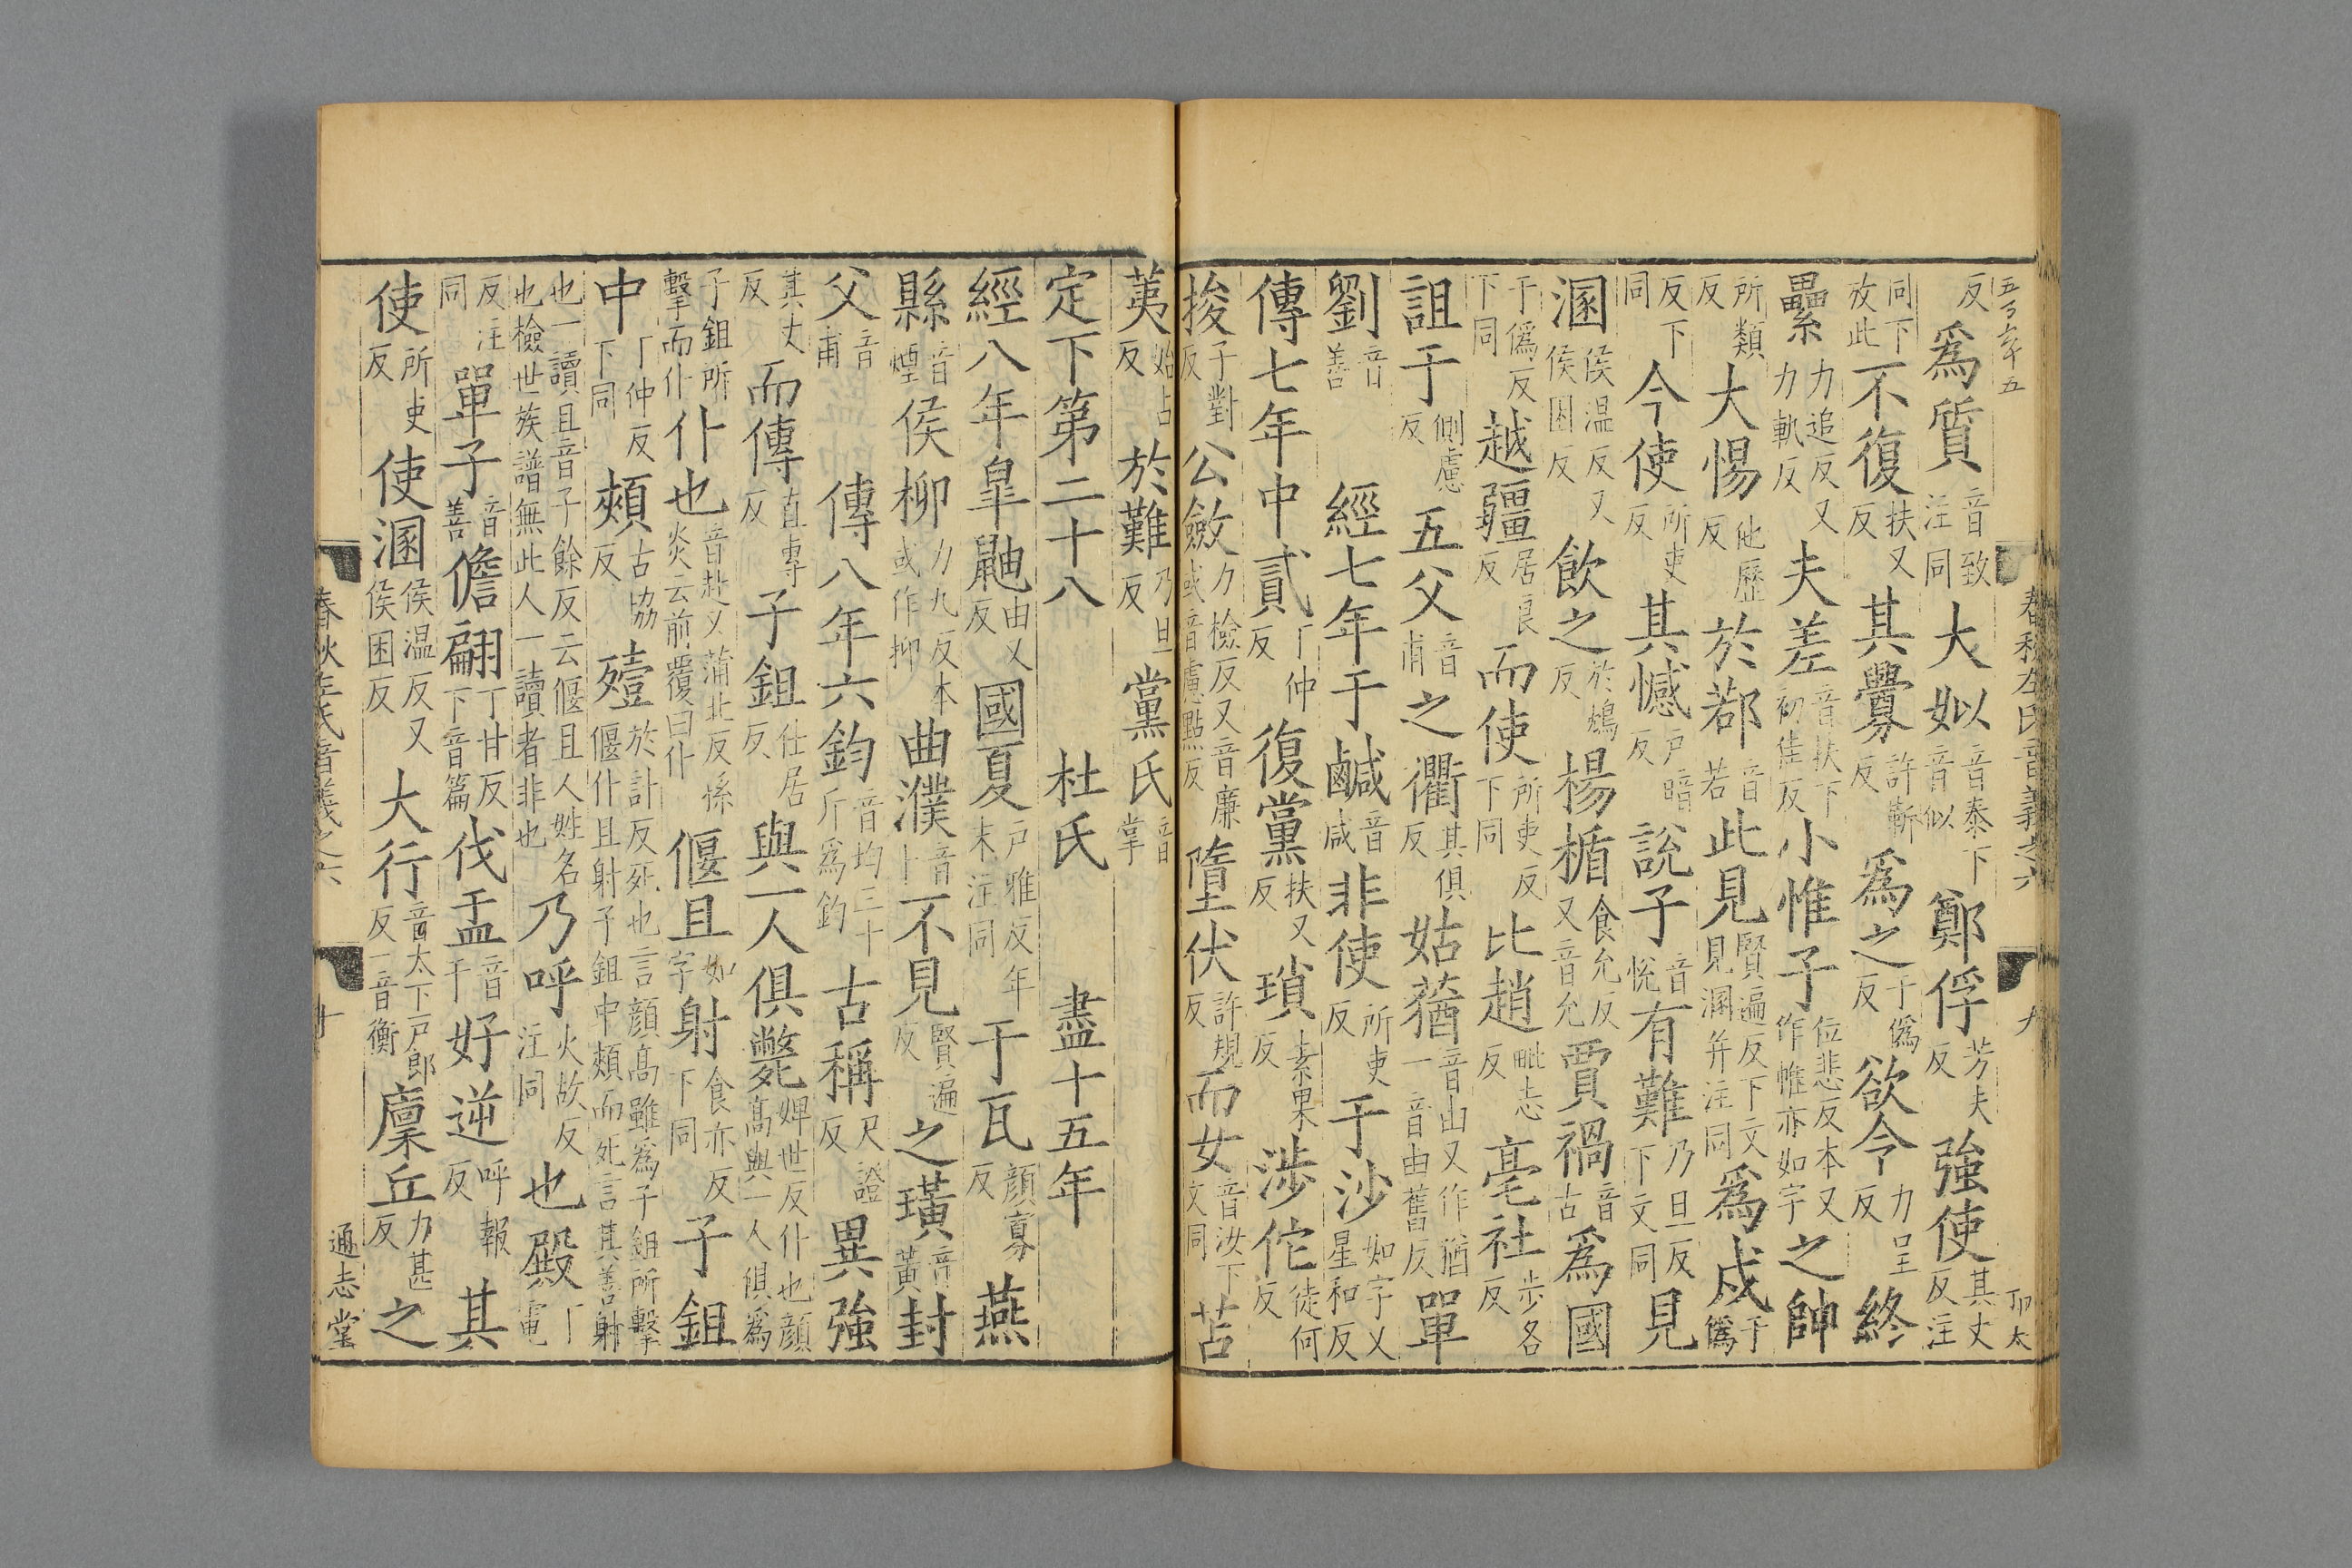 五百六十五 春秋左氏音義之六 九 卬太
反爲質音致注同大姒音泰下音似鄭俘芳夫反強使其丈反注
同下放此不復扶又反其釁許靳反爲之于僞反欲令力呈反終
纍力追反又力軌反夫差音扶下初佳反小惟子位悲反本又作帷亦如字之帥
所類反大惕他歷反於鄀音若此見賢遍反下文見溷并注同爲戍于僞
反下同今使所吏反其憾户暗反說子音悅有難乃旦反下文同見
溷侯温反又侯困反飲之於鴆反楊楯食允反又音允賈禍音古爲國
于僞反下同越疆居良反而使所吏反下同比趙毗志反亳社步各反
詛于側慮反五父音甫之衢其俱反姑蕕音由又作猶一音由舊反單
劉音善 經七年于鹹音咸非使所吏反于沙如字又星和反
傳七年中貳丁仲反復黨扶又反瑣素果反涉佗徒何反
捘子對反公斂力檢反又音廉或音慮點反墮伏許規反而女音汝下文同苫
荑始占反於難乃旦反黨氏音掌
定下第二十八 杜氏 盡十五年
經八年皐鼬由又反國夏户雅反年末注同于瓦顔寡反燕
縣音煙侯柳力九反本或作抑曲濮音卜不見賢遍反之璜音黃封
父音甫 傳八年六鈞音均三十斤爲鈞古稱尺證反異強
其丈反而傳直專反子鉏仕居反與一人俱斃婢世反仆也顔高與一人俱爲
子鉏所擊而仆仆也音赴又蒲北反孫炎云前覆曰仆偃且如字射食亦反下同子鉏
中丁仲反下同頰古協反殪於計反死也言顔高雖爲子鉏所擊偃仆且射子鉏中頰而死言其善射
也一讀且音子餘反云偃且人姓名也檢世族譜無此人一讀者非也乃呼火故反注同也殿丁電
反注同單子音善儋翩丁甘反下音篇伐盂音于好逆呼報反其
使所吏反使溷侯温反又侯困反大行音太下户郎反一音衡廩丘力甚反之
春秋左氏音義之六 十 通志堂